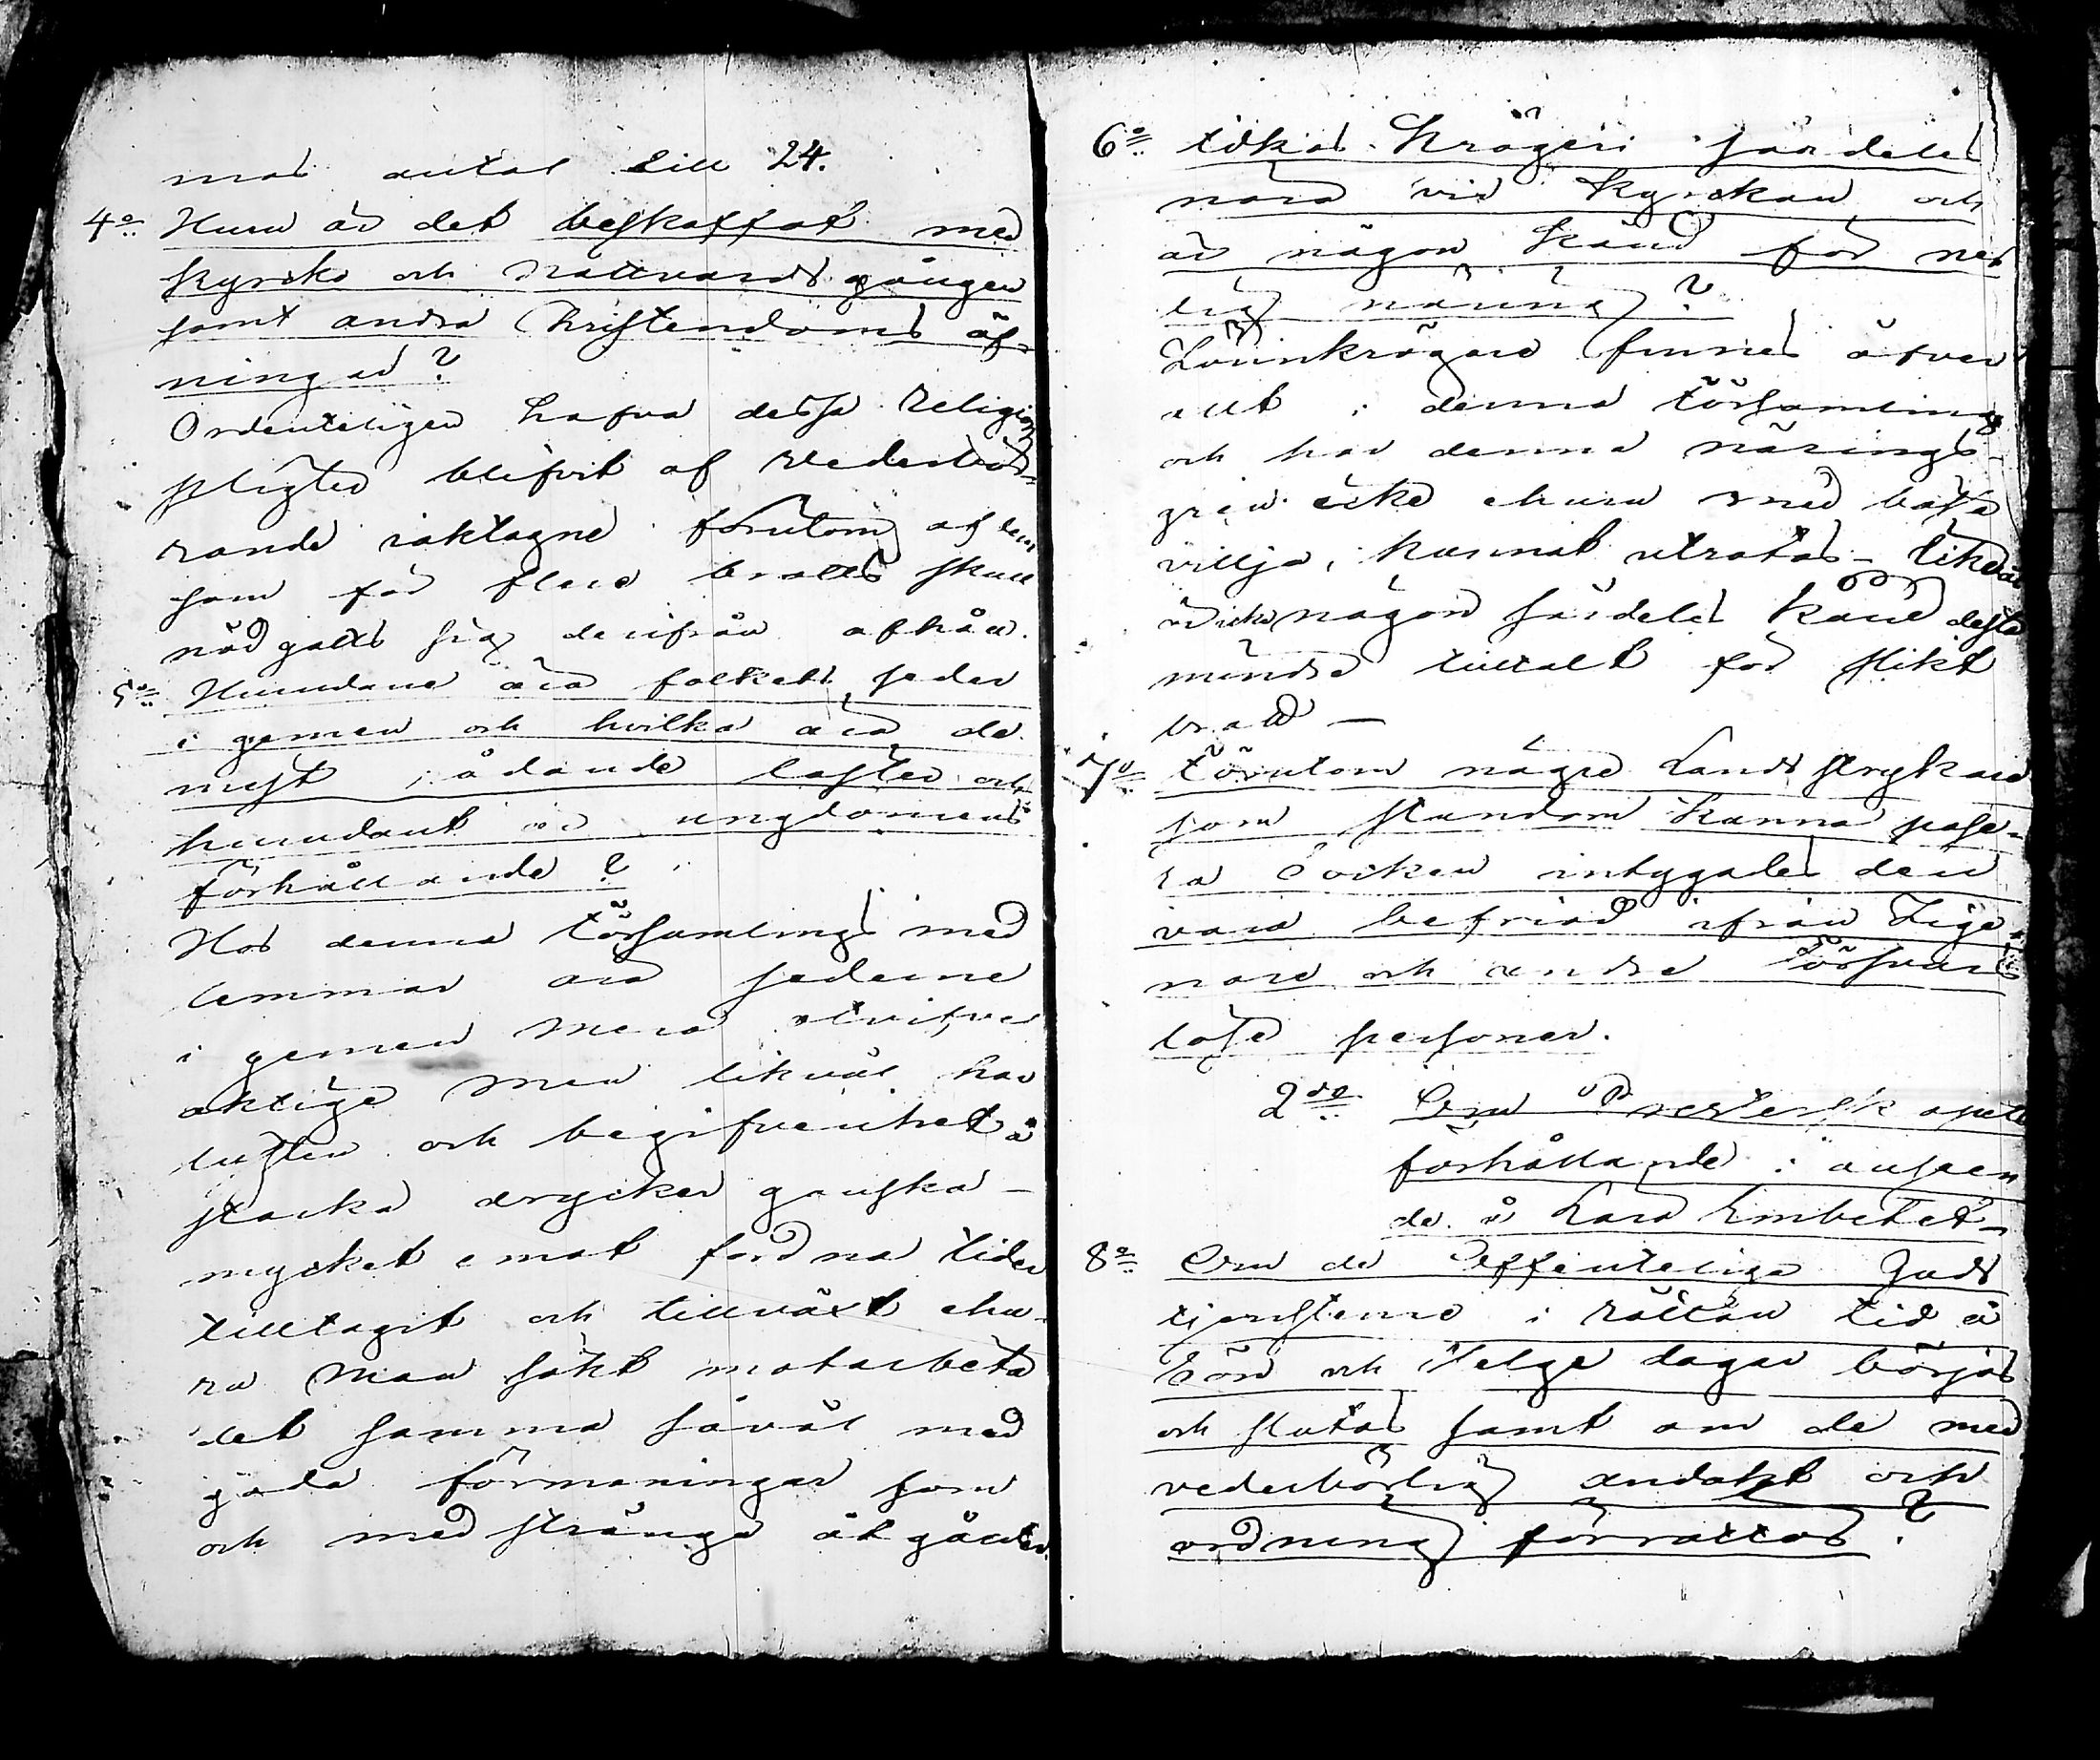 mas antal till 24.
4o Huru är det beskaffat med
kyrcko och Nattvards gången
samt andra Christendoms öf-
ningar?
Ordenteligen hafva dessa Religions
pligter blifvit af vederbö-
rande iakttagne förutom af dem
som för flere brotts skull
nödgatts sig derifrån afhålla.
5o Hurudane äro folkets seder
i gemen och hvilka äro de
mest rådande laster och
hurudant är ungdomens
förhållande?
Hos denna Församlings med
lemmar äro sederne
i gemen mera
aktige men likväl har
lusten och begifvenhet å
starka drycker ganska
mycket emot fordna tider
tilltagit och tillväxt ehu-
ru man sökt motarbeta
det samma såväl med
goda förmaningar som
och med stränga åtgärder.
6o Idkas Krögeri särdeles
nära vid Kyrckan och
är någon känd för ned
lig näring?
Lönnkrögare finnes öfver
allt i denna Församling
och har denna närings-
gren icke ehuru med bästa
villja, kunnat utrotas - likväl
är icke någon särdeles känd desto
mindre tilltalt för slikt
brott —
7o Förutom några Landsstrykare
som stundom kunna passe-
ra Socken intygades den
vara befriad ifrån Zige-
nare och andra Försvars
löse personer.
2do Om Presterskapets
förhållande i anseen
de å Läro Embetet-
8o Om de Offenteliga Guds
tjensterne i rättan tid å
Sön och Helge dagar börjas
och slutas samt om de med
vederbörlig andakt och
ordning förrättas?